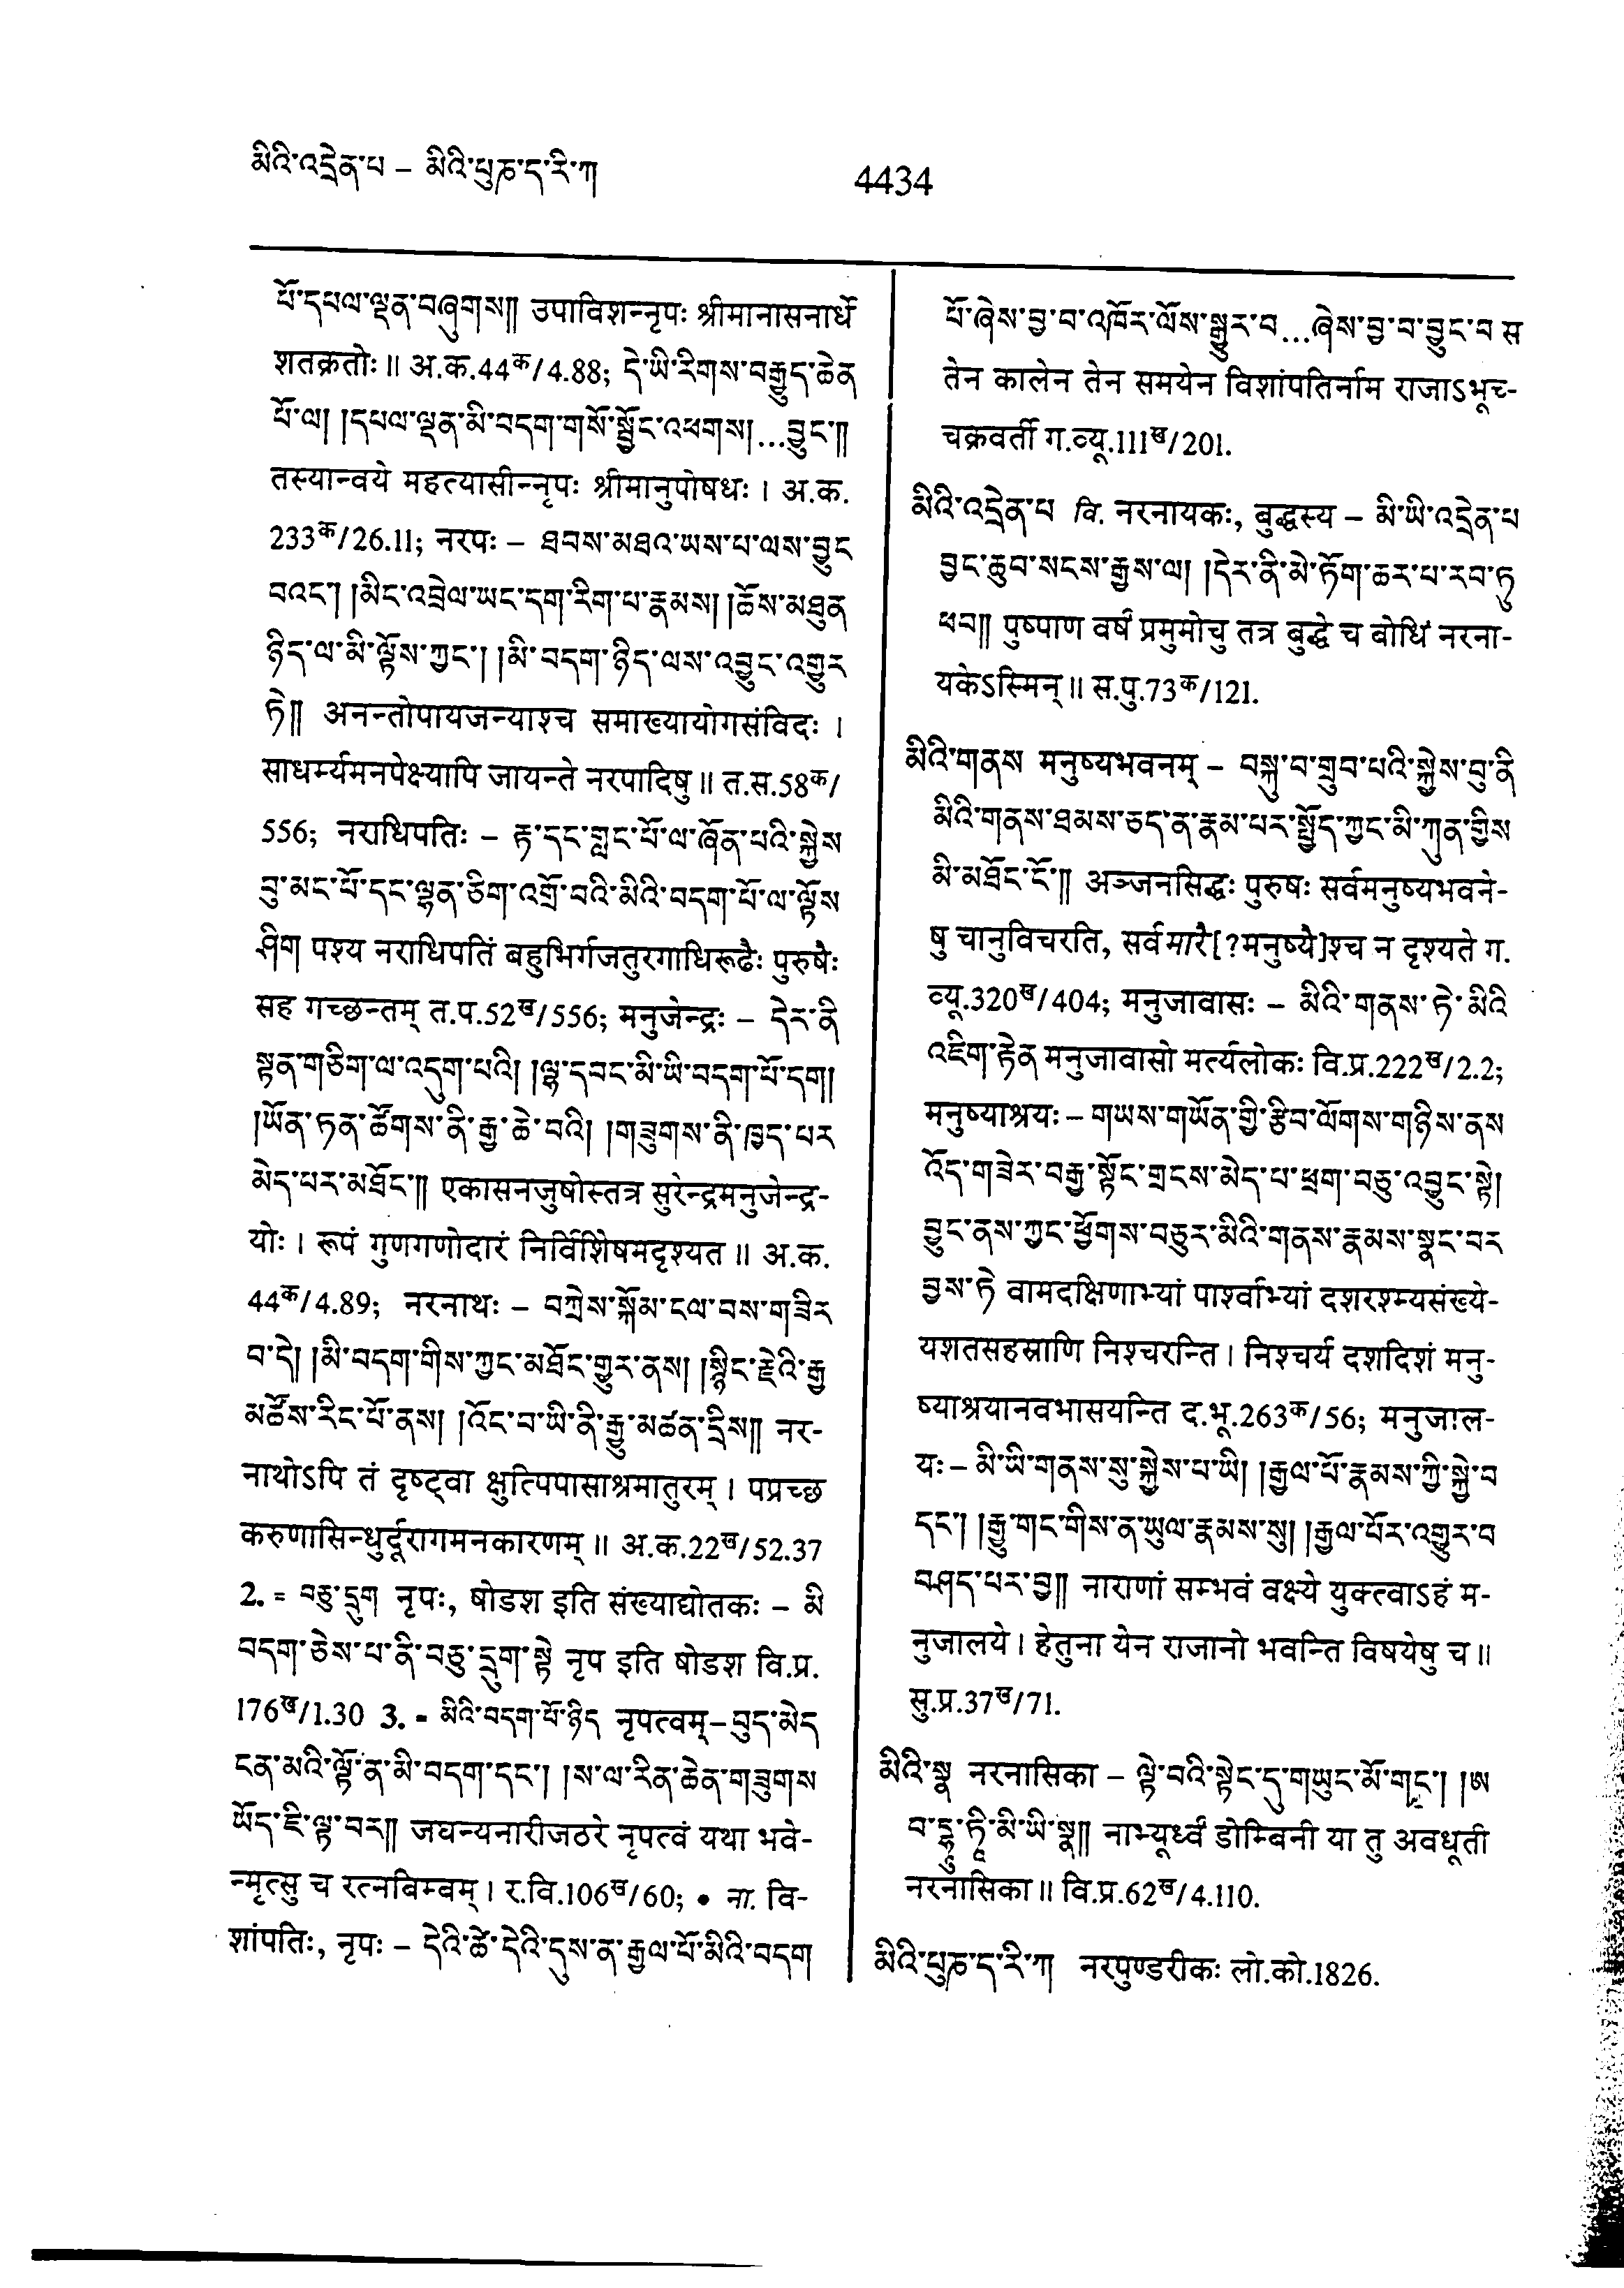 མིའི་འདྲེན་པ – མིའི་པུཎ་ད་རི་ཀ
4434
པོ་དཔལ་ལྡན་བཞུགས།། उपाविशन्नृपः श्रीमानासनार्धे
शतक्रतोः ॥ अ.क.44क/4.88; དེ་ཡི་རིགས་བརྒྱུད་ཆེན
པོ་ལ། །དཔལ་ལྡན་མི་བདག་གསོ་སྦྱོང་འཕགས།...བྱུང་།།
तस्यान्वये महत्यासीन्नृपः श्रीमानुपोषधः । अ.क.
233क/26.11; नरपः – ཐབས་མཐའ་ཡས་པ་ལས་བྱུང
བའང་། །མིང་འབྲེལ་ཡང་དག་རིག་པ་རྣམས། །ཆོས་མཐུན
ཉིད་ལ་མི་ལྟོས་ཀྱང་། །མི་བདག་ཉིད་ལས་འབྱུང་འགྱུར
ཏེ།། अनन्तोपायजन्याश्च समाख्यायोगसंविदः ।
साधर्म्यमनपेक्ष्यापि जायन्ते नरपादिषु ॥ त.स.58क/
556; नराधिपतिः – རྟ་དང་གླང་པོ་ལ་ཞོན་པའི་སྐྱེས
བུ་མང་པོ་དང་ལྷན་ཅིག་འགྲོ་བའི་མིའི་བདག་པོ་ལ་ལྟོས
ཤིག पश्य नराधिपतिं बहुभिर्गजतुरगाधिरूढैः पुरुषैः
सह गच्छन्तम् त.प.52ख/556; मनुजेन्द्रः – དེར་ནི
སྟན་གཅིག་ལ་འདུག་པའི། །ལྷ་དབང་མི་ཡི་བདག་པོ་དག།
།ཡོན་ཏན་ཚོགས་ནི་རྒྱ་ཆེ་བའི། །གཟུགས་ནི་ཁྱད་པར
མེད་པར་མཐོང་།། एकासनजुषोस्तत्र सुरेन्द्रमनुजेन्द्र-
योः । रूपं गुणगणोदारं निर्विशेषमदृश्यत ॥ अ.क.
44क/4.89; नरनाथः – བཀྲེས་སྐོམ་ངལ་བས་གཟིར
བ་དེ། །མི་བདག་གིས་ཀྱང་མཐོང་གྱུར་ནས། །སྙིང་རྗེའི་རྒྱ
མཚོས་རིང་པོ་ནས། །འོང་བ་ཡི་ནི་རྒྱུ་མཚན་དྲིས།། नर-
नाथोऽपि तं दृष्ट्वा क्षुत्पिपासाश्रमातुरम् । पप्रच्छ
करुणासिन्धुर्दूरागमनकारणम् ॥ अ.क.22ख/52.37
2. = བཅུ་དྲུག नृपः, षोडश इति संख्याद्योतकः – མི
བདག་ཅེས་པ་ནི་བཅུ་དྲུག་སྟེ नृप इति षोडश वि.प्र.
176ख/1.30 3. = མིའི་བདག་པོ་ཉིད नृपत्वम् – བུད་མེད
ངན་མའི་ལྟོ་ན་མི་བདག་དང་། །ས་ལ་རིན་ཆེན་གཟུགས
ཡོད་ཇི་ལྟ་བར།། जघन्यनारीजठरे नृपत्वं यथा भवे-
न्मृत्सु च रत्नबिम्बम् । र.वि.106ख/60; • ना. वि-
शांपतिः, नृपः – དེའི་ཚེ་དེའི་དུས་ན་རྒྱལ་པོ་མིའི་བདག
པོ་ཞེས་བྱ་བ་འཁོར་ལོས་སྒྱུར་བ...ཞེས་བྱ་བ་བྱུང་བ स
तेन कालेन तेन समयेन विशांपतिर्नाम राजाऽभूच्-
चक्रवर्ती ग.व्यू.111ख/201.
མིའི་འདྲེན་པ वि. नरनायकः, बुद्धस्य – མི་ཡི་འདྲེན་པ
བྱང་ཆུབ་སངས་རྒྱས་ལ། །དེར་ནི་མེ་ཏོག་ཆར་པ་རབ་ཏུ
ཕབ།། पुष्पाण वर्षं प्रमुमोचु तत्र बुद्धे च बोधिं नरना-
यकेऽस्मिन् ॥ स.पु.73क/121.
མིའི་གནས मनुष्यभवनम् – བསྐུ་བ་གྲུབ་པའི་སྐྱེས་བུ་ནི
མིའི་གནས་ཐམས་ཅད་ན་རྣམ་པར་སྤྱོད་ཀྱང་མི་ཀུན་གྱིས
མི་མཐོང་ངོ་།། अञ्जनसिद्धः पुरुषः सर्वमनुष्यभवने-
षु चानुविचरति, सर्वमारै[?मनुष्यै]श्च न दृश्यते ग.
व्यू.320ख/404; मनुजावासः – མིའི་གནས་ཏེ་མིའི
འཇིག་རྟེན मनुजावासो मर्त्यलोकः वि.प्र.222ख/2.2;
मनुष्याश्रयः – གཡས་གཡོན་གྱི་རྩིབ་ལོགས་གཉིས་ནས
འོད་གཟེར་བརྒྱ་སྟོང་གྲངས་མེད་པ་ཕྲག་བཅུ་འབྱུང་སྟེ།
བྱུང་ནས་ཀྱང་ཕྱོགས་བཅུར་མིའི་གནས་རྣམས་སྣང་བར
བྱས་ཏེ वामदक्षिणाभ्यां पार्श्वाभ्यां दशरश्म्यसंख्ये-
यशतसहस्राणि निश्चरन्ति । निश्चर्य दशदिशं मनु-
ष्याश्रयानवभासयन्ति द.भू.263क/56; मनुजाल-
यः – མི་ཡི་གནས་སུ་སྐྱེས་པ་ཡི། །རྒྱལ་པོ་རྣམས་ཀྱི་སྐྱེ་བ
དང་། །རྒྱུ་གང་གིས་ན་ཡུལ་རྣམས་སུ། །རྒྱལ་པོར་འགྱུར་བ
བཤད་པར་བྱ།། नाराणां सम्भवं वक्ष्ये युक्त्वाऽहं म-
नुजालये । हेतुना येन राजानो भवन्ति विषयेषु च ॥
सु.प्र.37ख/71.
མིའི་སྣ नरनासिका – ལྟེ་བའི་སྟེང་དུ་གཡུང་མོ་གང་། །ཨ
བ་དྷཱུ་ཏཱི་མི་ཡི་སྣ།། नाभ्यूर्ध्वं डोम्बिनी या तु अवधूती
नरनासिका ॥ वि.प्र.62ख/4.110.
མིའི་པུཎ་ད་རི་ཀ नरपुण्डरीकः लो.को.1826.